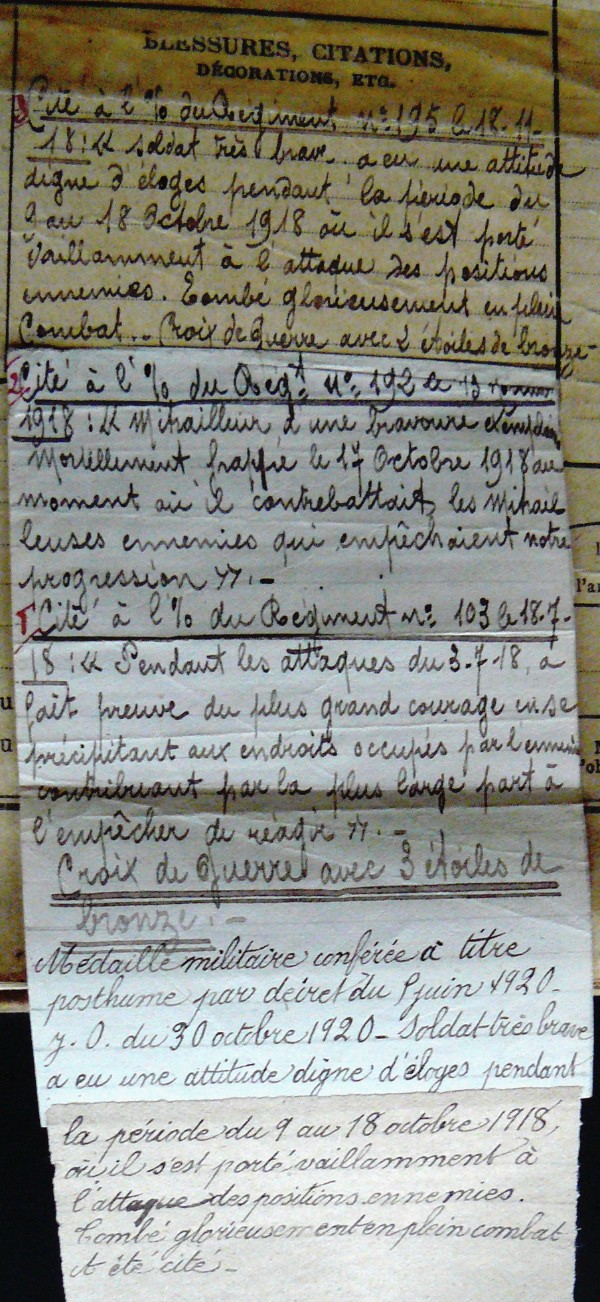 BLESSURES, CITATIONS,
DÉCORATIONS, ETC.
3 Cité à l'% du Régiment n° 195 le 18-11-
18 : « Soldat très brave. a eu une attitude
digne d'éloges pendant la période du
9 au 18 Octobre 1918 où il s'est porté
vaillamment à l'attaque des positions
ennemies. Tombé glorieusement en plein
Combat... Croix de Guerre avec 2 étoiles de bronze-
2 Cité à l'% du Régt n° 192 le 13
1918 : « Mitrailleur d'une bravoure
Mortellement frappé le 17 Octobre 1918 au
moment où il contrebattait les mitrail
leuses ennemies qui empêchaient notre
progression ». -
1 Cité à l'% du Régiment n° 103 le 18-7-
18 : « Pendant les attaques du 3-7-18, a
fait preuve du plus grand courage en se
précipitant aux endroits occupés par l'ennemi
contribuant par la plus large part à
l'empêcher de réagir ». -
Croix de Guerre avec 3 étoiles de
bronze. -
Médaille militaire conférée à titre
posthume par décret du juin 1920-
J. O. du 30 octobre 1920 - Soldat très brave
a eu une attitude digne d'éloges pendant
la période du 9 au 18 octobre 1918,
où il s'est porté vaillamment à
l'attaque des positions ennemies.
Tombé glorieusement en plein combat
A été cité -